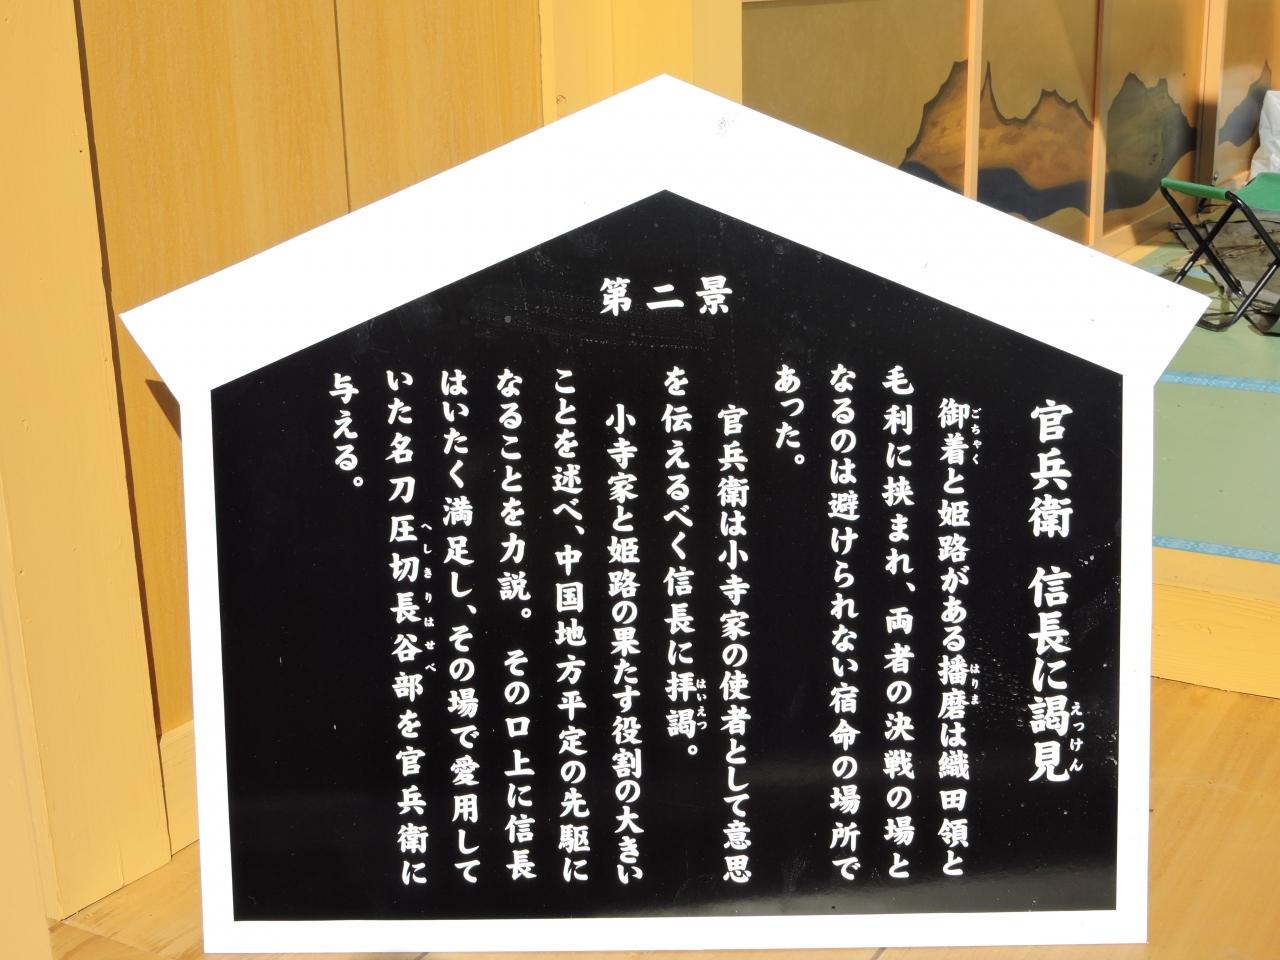 第二景
官兵衛 信長に謁見
えっけん
御着と姫路がある播磨は織田領と
ごちゃく
はりま
毛利に挟まれ、両者の決戦の場と
なるのは避けられない宿命の場所で
あった。
官兵衛は小寺家の使者として意思
を伝えるべく信長に拝謁。
はいえつ
小寺家と姫路の果たす役割の大きい
ことを述べ、中国地方平定の先駆に
なることを力説。 その口上に信長
はいたく満足し、その場で愛用して
いた名刀圧切長谷部を官兵衛に
へしきりはせべ
与える。